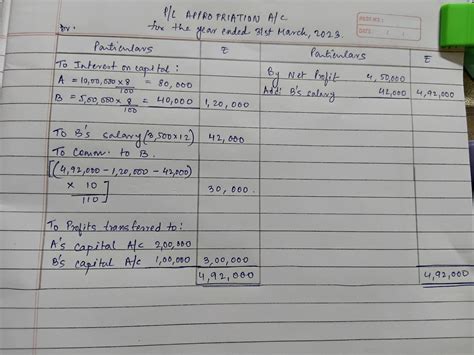 P/L APPROPRIATION A/C
Dr. for the year ended 31st March, 2023.
Particulars ₹ Particulars ₹
To Interest on capital :
A = 10,00,000 × 8/100 = 80,000
B = 5,00,000 × 8/100 = 40,000 1,20,000
By Net Profit 4,50,000
Add: B's salary 42,000 4,92,000
To B's salary (3,500×12) 42,000
To Comm. to B.
[(4,92,000 - 1,20,000 - 42,000)
× 10/110] 30,000.
To Profits transferred to:
A's Capital A/c 2,00,000
B's capital A/c 1,00,000 3,00,000
4,92,000 4,92,000